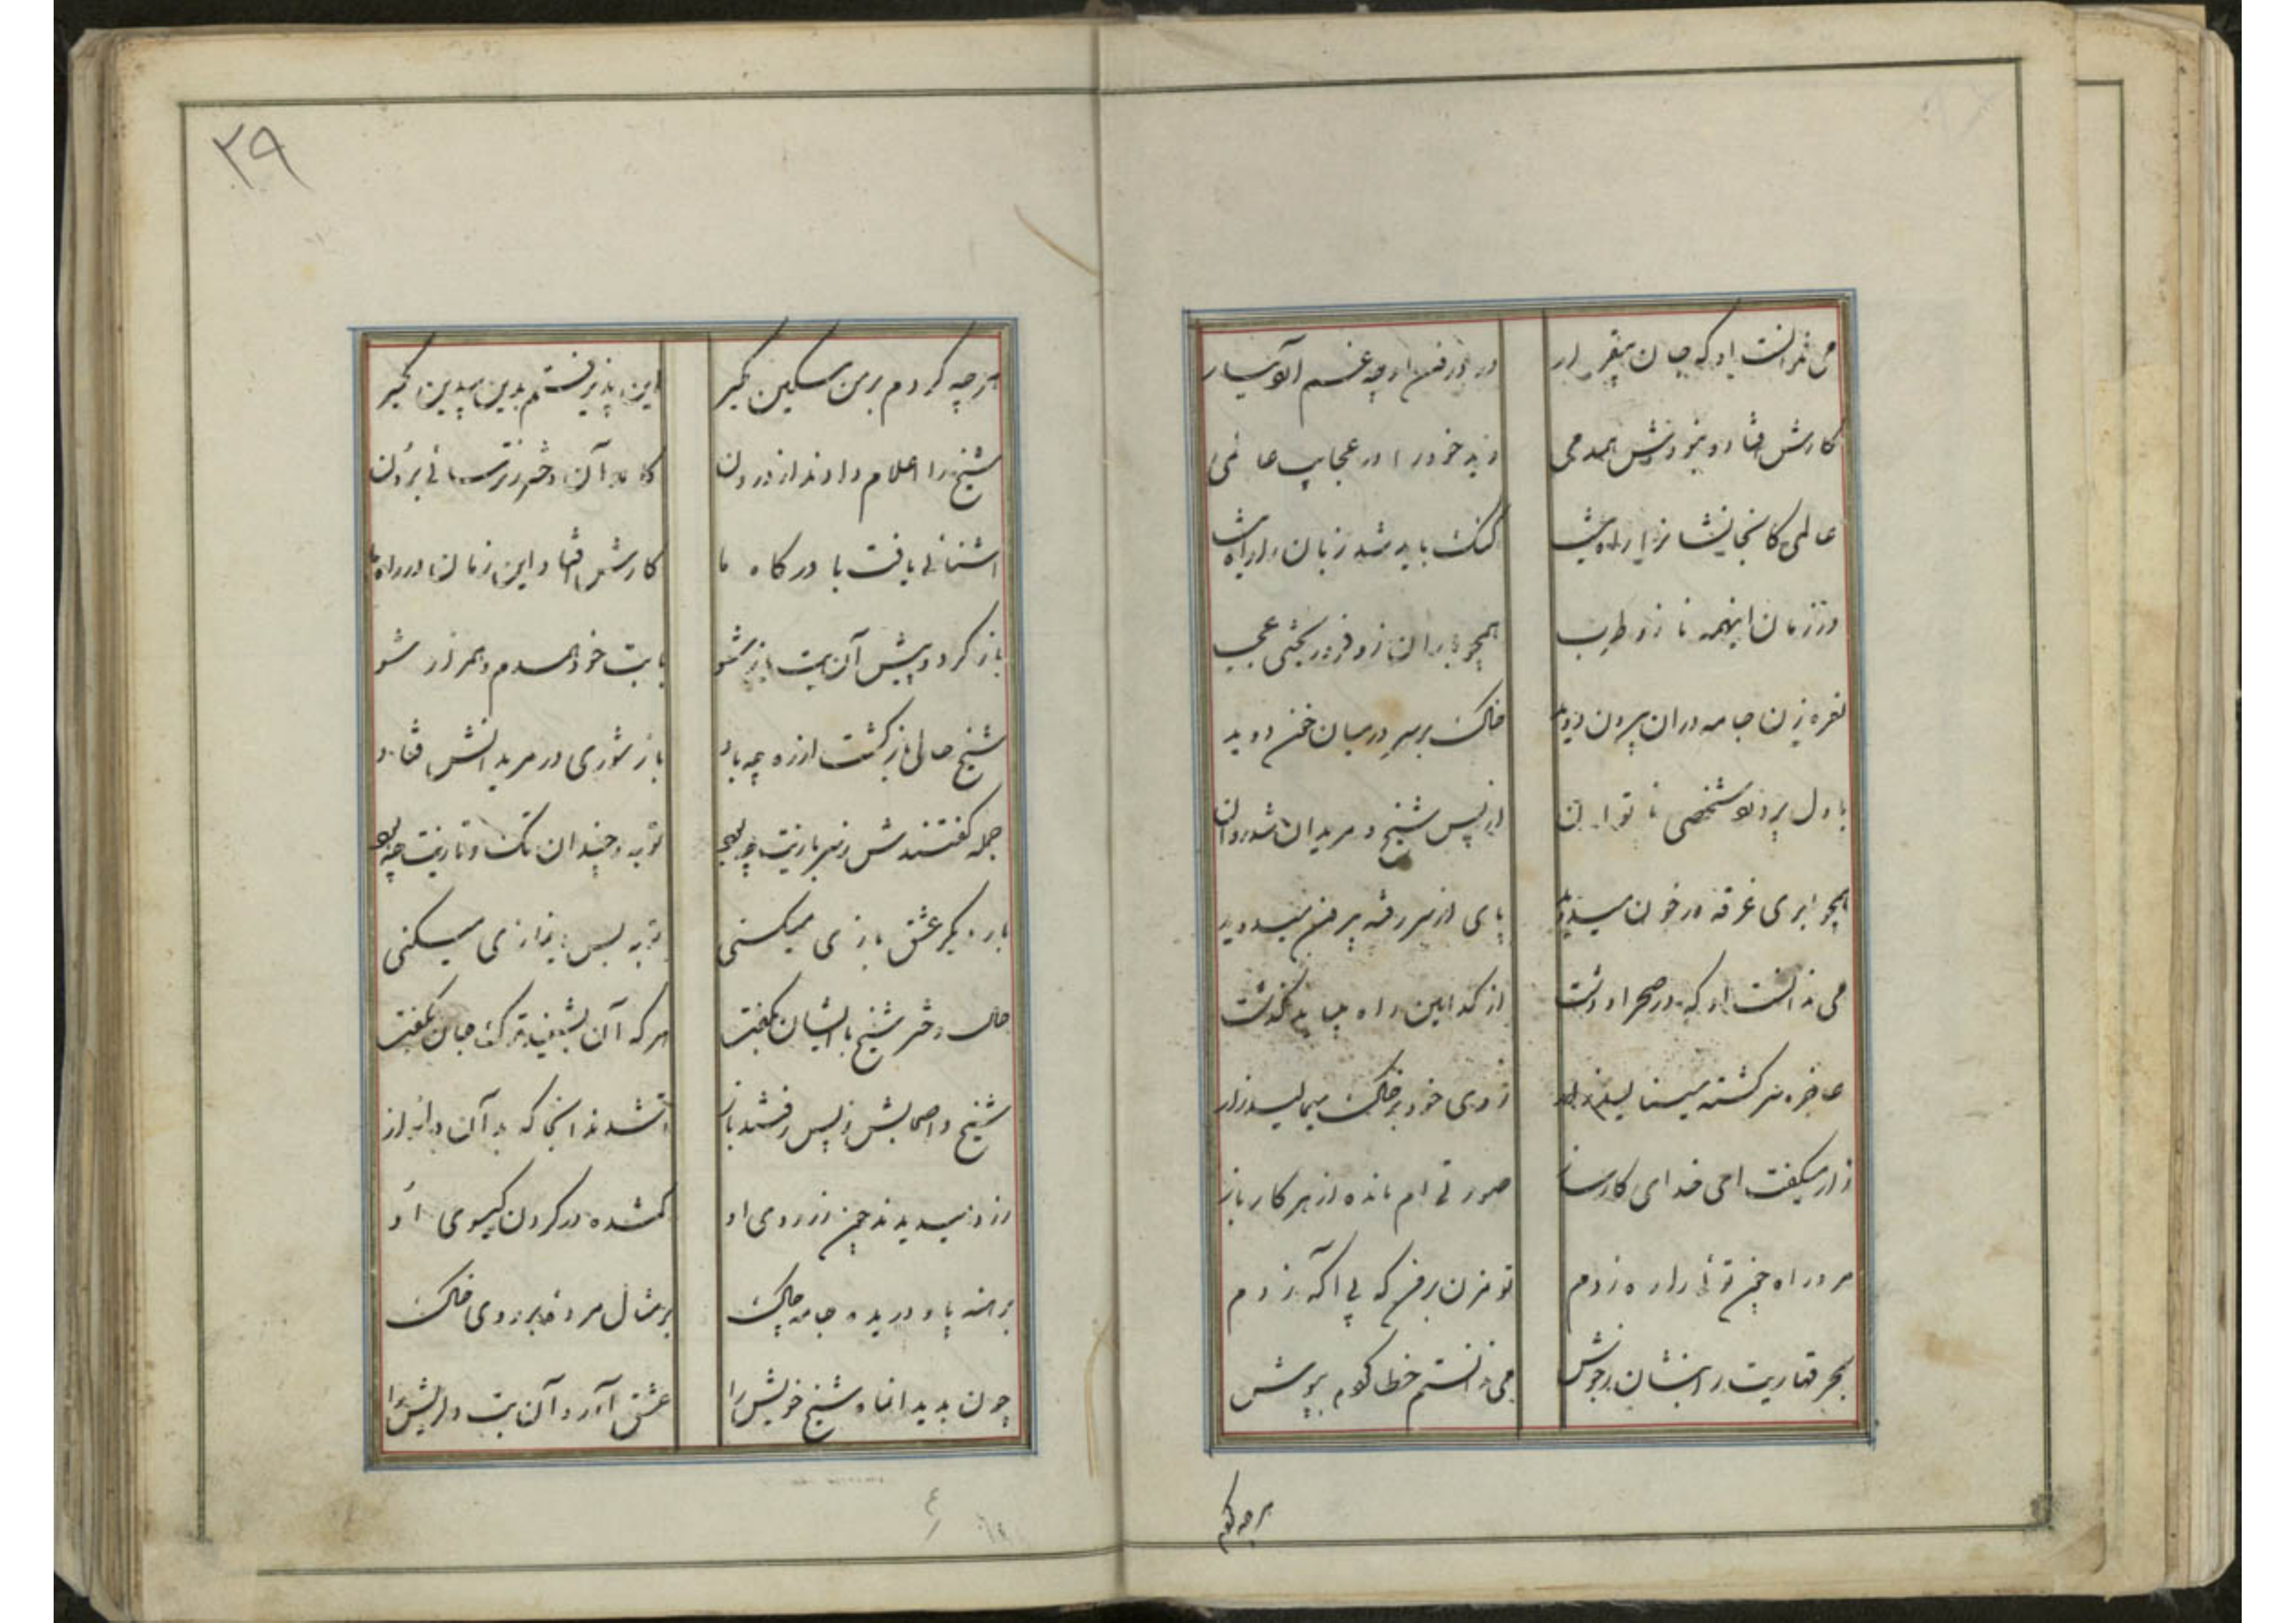 می ندانست او که جان بیقرار در درون او چه
کارش افتاد و نبودش همدمی دید خود را در عجایب عالمی
عالمی کانجا نشان راه نیست گنگ باید شد زبان
در زمان اینهمه ناز و طرب همچو باران زو فرو ریخت ای عجب
نعره زن جامه دران بیرون دوید خاک بر سر در میان خون دوید
با دل پر درد و شخصی ناتوان از پس شیخ و مریدان شد روان
همچو ابری غرقه در خون میدوید پای از سر رفته بر خون میدوید
می ندانست او که در صحرا و دشت از کدامین راه میباید گذشت
عاجز و سرگشته مینالید زار روی خود بر خاک میمالید زار
زار میگفت ای خدای کارساز عورتی ام مانده از هر کار باز
مرد راه چون توئی را ره زدم تو مزن بر من که بی آگه زدم
بحر قهاریت را بنشان ز جوش می ندانستم خطا کردم بپوش
هر چه کردم
۲۹
هر چه کردم بر من مسکین مگیر دین پذیرفتم بدین بیدین مگیر
شیخ را اعلام دادند از درون کامد آن دختر ز ترسائی برون
آشنائی یافت با درگاه ما کارش افتاد این زمان در راه ما
باز گرد و پیش آن بت باز شو با بت خود همدم و همراز شو
شیخ حالی بازگشت از ره چو باد باز شوری در مریدانش فتاد
جمله گفتندش ز سر بازیت چه بود توبه و چندان تک و تازیت چه بود
بار دیگر عشق بازی میکنی توبه بس نانمازی میکنی
حال دختر شیخ با ایشان بگفت هر که آن بشنید ترک جان بگفت
شیخ و اصحابش ز پس رفتند باز تا شدند آنجا که بد آن دلنواز
زرد میدیدند چون زر روی او گمشده در گرد ره گیسوی او
برهنه پا و دریده جامه چاک بر مثال مرده بر روی خاک
چون بدید آن ماه شیخ خویش را غشی آورد آن بت دلریش را